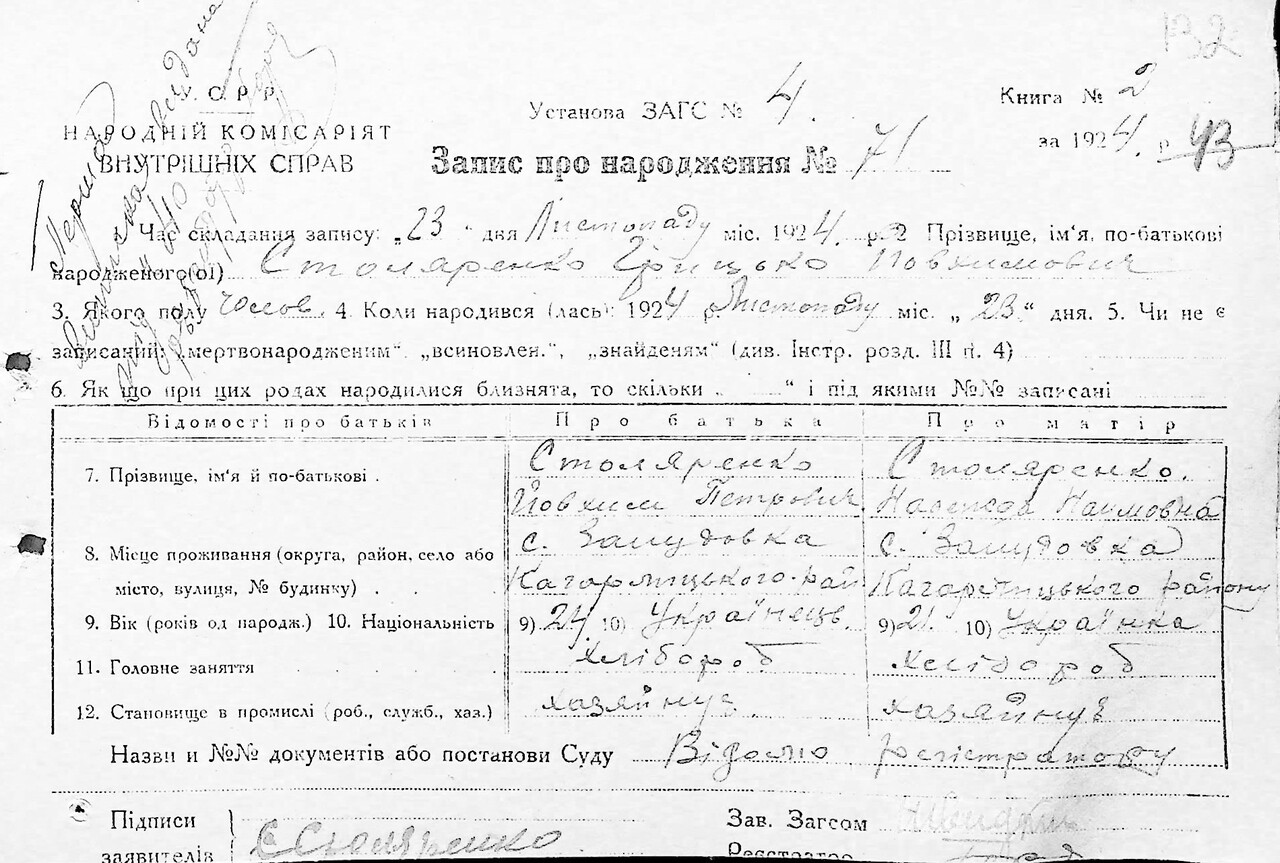 132
У.С.Р.Р.
Установа ЗАГС № 4.
Книга № 2
НАРОДНІЙ КОМІСАРІЯТ
ВНУТРІШНІХ СПРАВ
за 1924. р. 43
Запис про народження № 71
1. Час складання запису: „23 “ дня Листопаду міс. 1924. р. 2 Прізвище, ім'я, по-батькові
народженого(ої) Столяренко Грицько Йовхимович
3. Якого полу чолов. 4. Коли народився (лась): 1924 р. Листопаду міс. „ 23.“ дня. 5. Чи не є
записаний: „мертвонародженим“ „всиновлен.“, „знайденям“ (див. Інстр. розд. III п. 4)
6. Як що при цих родах народилися близнята, то скільки „ “ і під якими №№ записані
Відомості про батьків Про батька Про матір
7. Прізвище, ім'я й по-батькові . Столяренко Столяренко.
Йовхим Петрович Настя Наумовна
8. Місце проживання (округа, район, село або с. Замудовка с. Замудовка
місто, вулиця, № будинку) . . Кагарлицького рай Кагарлицького району
9. Вік (років од народж.) 10. Національність 9) 24 10) Українець 9) 21 10) Українка
11. Головне заняття хлібороб хлібороб
12. Становище в промислі (роб., служб., хаз.) хазяйнує. хазяйнує
Назви и №№ документів або постанови Суду Відомо регістратору
Підписи
заявителів Є Столяренко
Зав. Загсом
Реєстратор